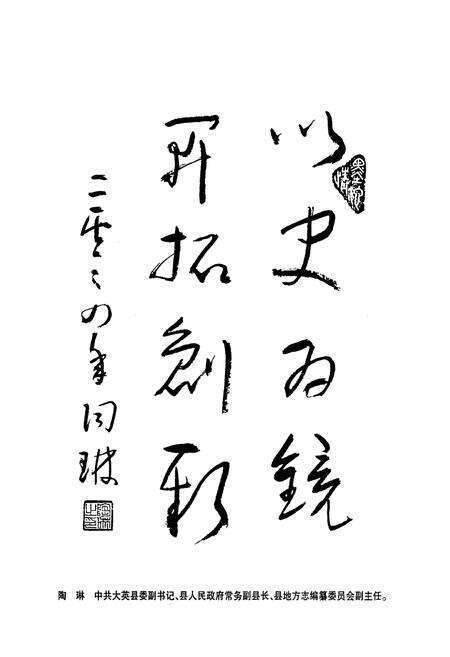 以史为鏡
开拓創新
二零零四年陶琳
陶　琳　中共大英县委副书记、县人民政府常务副县长、县地方志编纂委员会副主任。